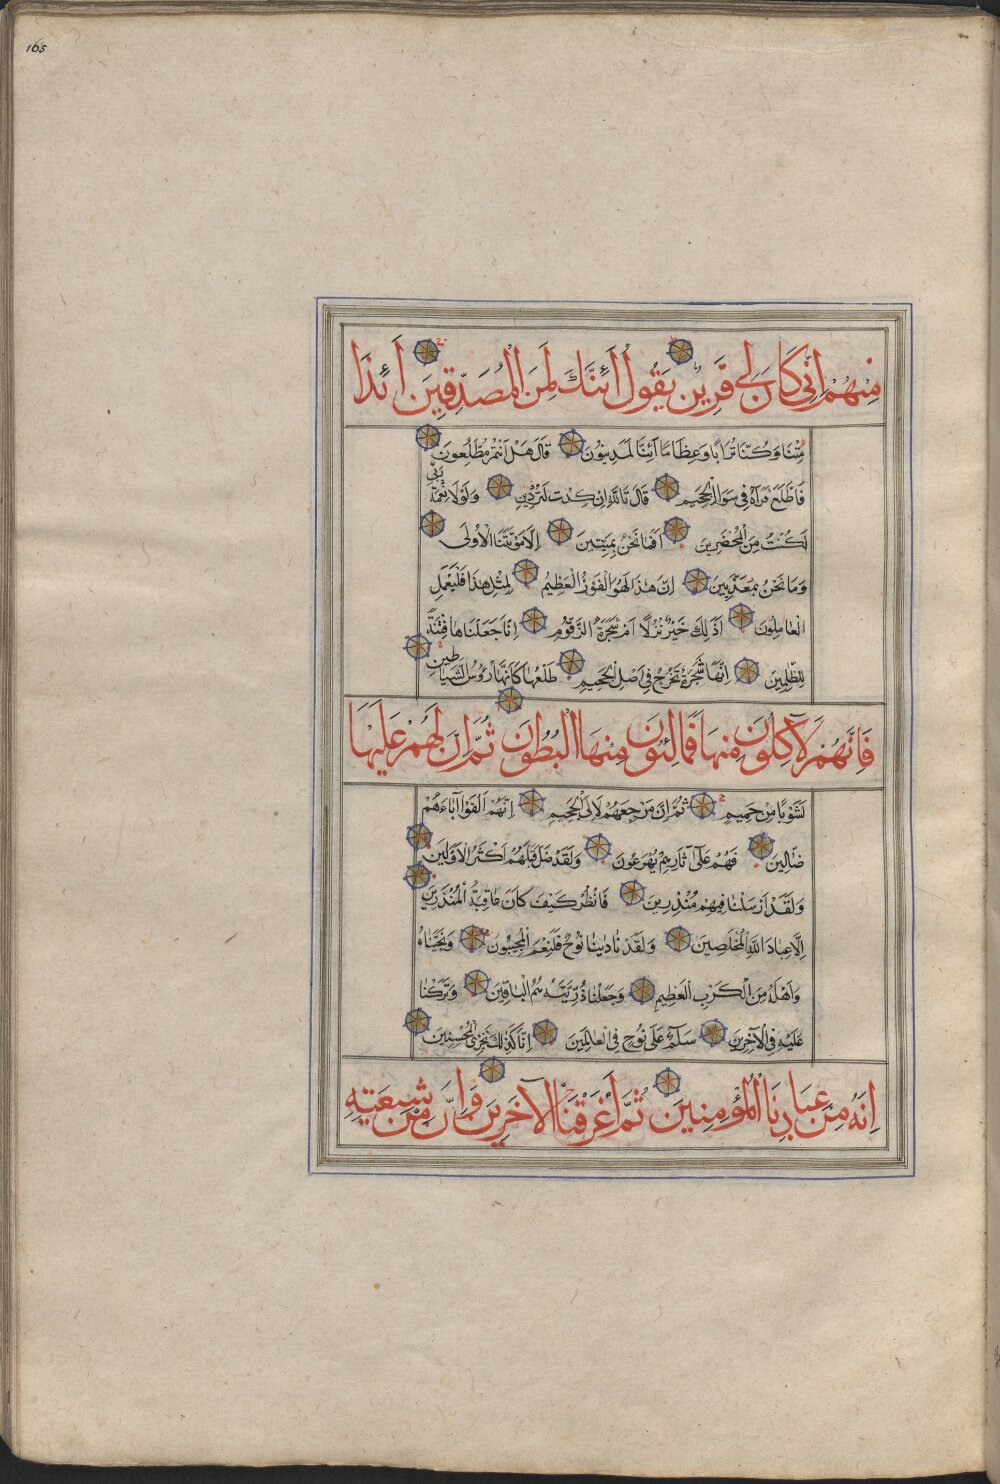 165
منهم اني كان لي قرين يقول أئنك لمن المصدقين أئذا
متنا وكنا ترابا وعظاما أئنا لمدينون قال هل انتم مطلعون
فاطلع فرآه في سواء الجحيم قال تالله ان كدت لتردين ولولا نعمة ربي
لكنت من المحضرين أفما نحن بميتين الا موتتنا الأولى
وما نحن بمعذبين ان هذا لهو الفوز العظيم لمثل هذا فليعمل
العاملون أذلك خير نزلا ام شجرة الزقوم انا جعلناها فتنة
للظالمين انها شجرة تخرج في اصل الجحيم طلعها كأنه رؤس الشياطين
فانهم لآكلون منها فمالئون منها البطون ثم ان لهم عليها
لشوبا من حميم ثم ان مرجعهم لإلى الجحيم انهم الفوا آباءهم
ضالين فهم على آثارهم يهرعون ولقد ضل قبلهم اكثر الاولين
ولقد ارسلنا فيهم منذرين فانظر كيف كان عاقبة المنذرين
الا عباد الله المخلصين ولقد نادينا نوح فلنعم المجيبون ونجيناه
واهله من الكرب العظيم وجعلنا ذريته هم الباقين وتركنا
عليه في الآخرين سلم على نوح في العالمين انا كذلك نجزي المحسنين
انه من عبادنا المؤمنين ثم أغرقنا الآخرين وان من شيعته